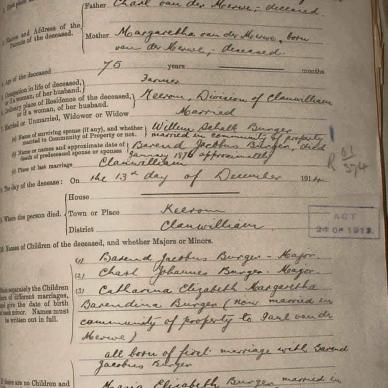 Father Charl van der Merwe, deceased
Names and Address of the
Parents of the deceased
Mother Margaretha van der Merwe, born
van der Merwe, deceased.
Age of the deceased 75 years months
Occupation in life of deceased,
if a woman, of her husband. Farmer
Ordinary place of Residence of the deceased,
if a woman, of husband. Keerom, Division of Clanwilliam
Married or Unmarried, Widower or Widow Married
(a) Name of surviving spouse (if any), and whether
married in Community of Property or not. Willem Schalk Burger
married in community of property
Name or names and approximate date of
death of predeceased spouse or spouses Barend Jacobus Burger, died
January 1876 approximately
(c) Place of last marriage Clanwilliam
The day of the decease: On the 13th day of December 191
When the person died.
House
Town or Place Keerom
District Clanwilliam
Names of Children of the deceased, and whether Majors or Minors.
separately the Children
of different marriages,
and give the date of birth
each minor. Names must
be written out in full.
(1) Barend Jacobus Burger - Major
(2) Charl Johannes Burger - Major
(3) Catharina Elizabeth Margaretha
Barendina Burger (now married in
community of property to
Merwe)
all born of first marriage with Barend
Jacobus Burger
there are no Children and
Maria Elizabeth Burger married in